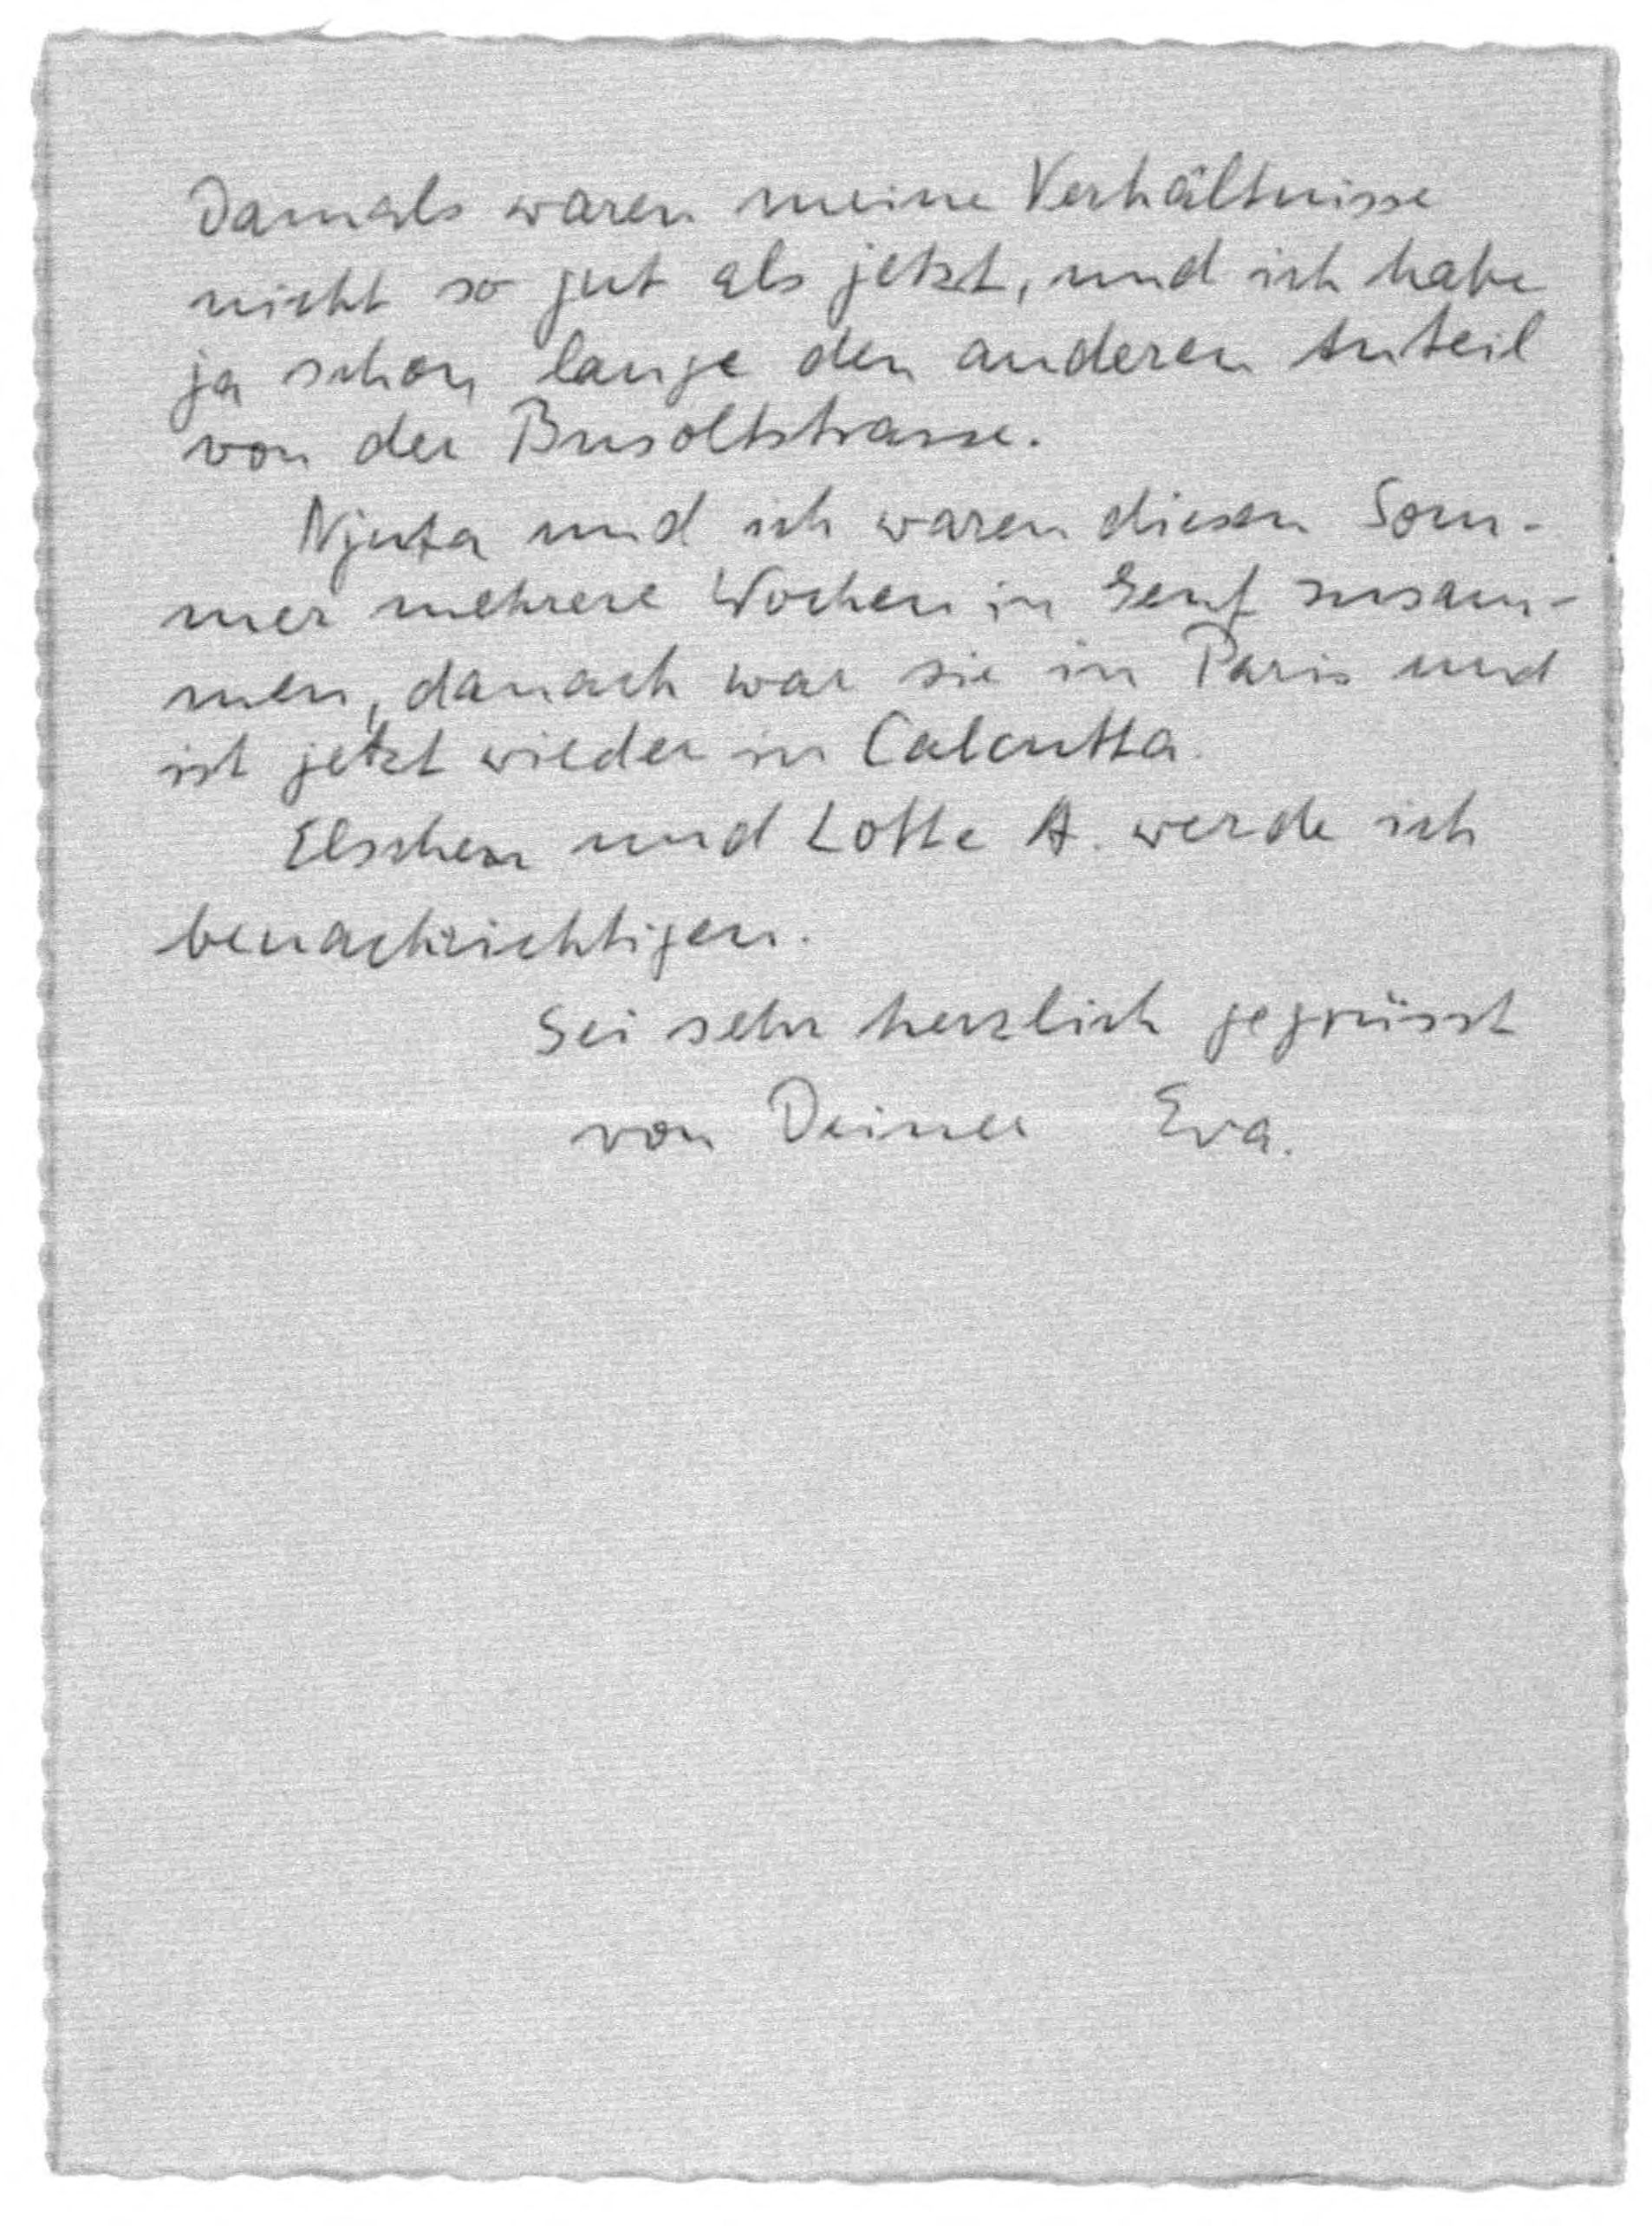 Damals waren meine Verhältnisse
nicht so gut als jetzt, und ich habe
ja schon lange den anderen Anteil
von der Busoltstrasse.
Njuta und ich waren diesen Som-
mer mehrere Wochen in Genf zusam-
men, danach war sie in Paris und
ist jetzt wieder in Calcutta.
Elschen und Lotte A. werde ich
benachrichtigen.
Sei sehr herzlich gegrüsst
von Deiner Eva.